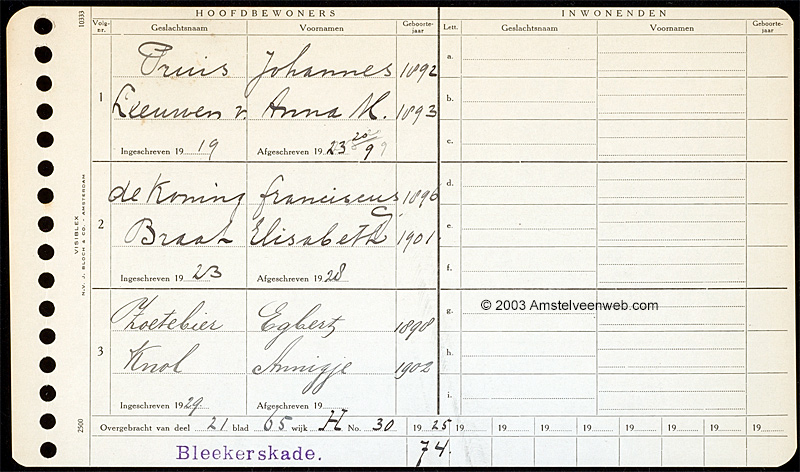 HOOFDBEWONERS INWONENDEN
Volg-nr. Geslachtsnaam Voornamen Geboorte-jaar Lett. Geslachtsnaam Voornamen Geboorte-jaar
10333
Pruis Johannes 1892 a.
1 Leeuwen v. Anna M. 1893 b.
c.
Ingeschreven 19 19 Afgeschreven 19 23
de Koning franciscus 1896 d.
2 Braat Elisabeth G. 1901. e.
f.
Ingeschreven 19 23 Afgeschreven 19 28
VISIBLEX
N.V. J. BLOCH & CO. - AMSTERDAM
© 2003 Amstelveenweb.com
Zoetebier Egbert 1898 g.
3 Knol Annigje 1902 h.
i.
Ingeschreven 19 29 Afgeschreven 19
2500
Overgebracht van deel 21 blad 65 wijk H No. 30 19 25 19 19 19 19 19 19 19
Bleekerskade. 74.